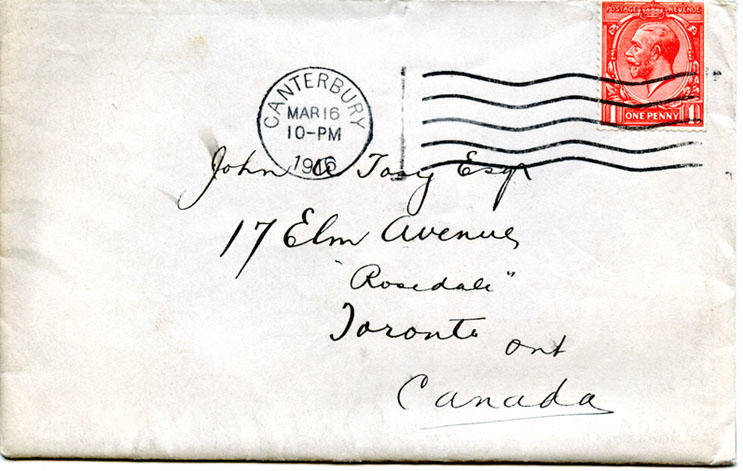 POSTAGE REVENUE
1 ONE PENNY 1
CANTERBURY
MAR 16
10-PM
John A Esqr
17 Elm Avenue
"Rosedale"
Toronto Ont
Canada